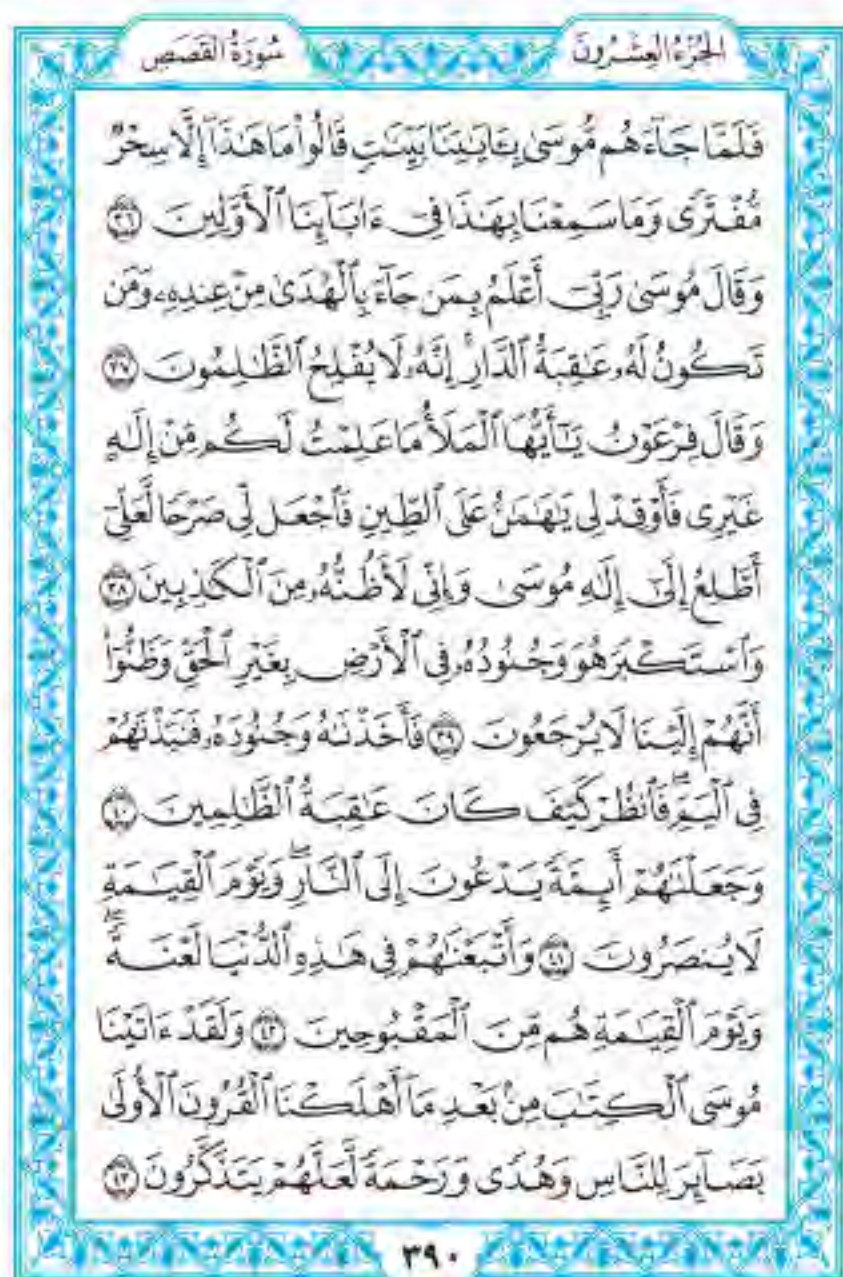 الجزء العشرون
سورة القصص
فَلَمَّا جَآءَهُم مُّوسَىٰ بِـَٔايَـٰتِنَا بَيِّنَـٰتٍ قَالُوا۟ مَا هَـٰذَآ إِلَّا سِحْرٌ
مُّفْتَرًى وَمَا سَمِعْنَا بِهَـٰذَا فِىٓ ءَابَآئِنَا ٱلْأَوَّلِينَ ٣٦
وَقَالَ مُوسَىٰ رَبِّىٓ أَعْلَمُ بِمَن جَآءَ بِٱلْهُدَىٰ مِنْ عِندِهِۦ وَمَن
تَكُونُ لَهُۥ عَـٰقِبَةُ ٱلدَّارِ ۖ إِنَّهُۥ لَا يُفْلِحُ ٱلظَّـٰلِمُونَ ٣٧
وَقَالَ فِرْعَوْنُ يَـٰٓأَيُّهَا ٱلْمَلَأُ مَا عَلِمْتُ لَكُم مِّنْ إِلَـٰهٍ
غَيْرِى فَأَوْقِدْ لِى يَـٰهَـٰمَـٰنُ عَلَى ٱلطِّينِ فَٱجْعَل لِّى صَرْحًا لَّعَلِّىٓ
أَطَّلِعُ إِلَىٰٓ إِلَـٰهِ مُوسَىٰ وَإِنِّى لَأَظُنُّهُۥ مِنَ ٱلْكَـٰذِبِينَ ٣٨
وَٱسْتَكْبَرَ هُوَ وَجُنُودُهُۥ فِى ٱلْأَرْضِ بِغَيْرِ ٱلْحَقِّ وَظَنُّوٓا۟
أَنَّهُمْ إِلَيْنَا لَا يُرْجَعُونَ ٣٩ فَأَخَذْنَـٰهُ وَجُنُودَهُۥ فَنَبَذْنَـٰهُمْ
فِى ٱلْيَمِّ ۖ فَٱنظُرْ كَيْفَ كَانَ عَـٰقِبَةُ ٱلظَّـٰلِمِينَ ٤٠
وَجَعَلْنَـٰهُمْ أَئِمَّةً يَدْعُونَ إِلَى ٱلنَّارِ ۖ وَيَوْمَ ٱلْقِيَـٰمَةِ
لَا يُنصَرُونَ ٤١ وَأَتْبَعْنَـٰهُمْ فِى هَـٰذِهِ ٱلدُّنْيَا لَعْنَةً ۖ
وَيَوْمَ ٱلْقِيَـٰمَةِ هُم مِّنَ ٱلْمَقْبُوحِينَ ٤٢ وَلَقَدْ ءَاتَيْنَا
مُوسَى ٱلْكِتَـٰبَ مِنۢ بَعْدِ مَآ أَهْلَكْنَا ٱلْقُرُونَ ٱلْأُولَىٰ
بَصَآئِرَ لِلنَّاسِ وَهُدًى وَرَحْمَةً لَّعَلَّهُمْ يَتَذَكَّرُونَ ٤٣
٣٩٠